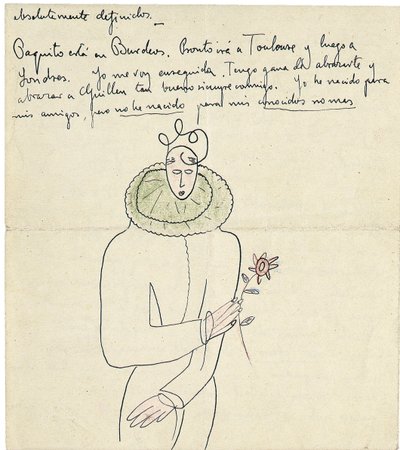 absolutamente definidos._
Paquito está en Burdeos. Pronto irá a Toulouse y luego a
Londres. Yo me voy enseguida. Tengo gana de abrazarte y
abrazar a Guillen tan bueno siempre conmigo. Yo he nacido para
mis amigos, pero no he nacido para mis conocidos no mas